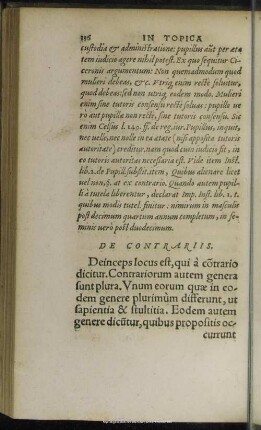 136 IN TOPICA
custodia & administratione: pupillus aūt per æta
tem iudicio agere nihil potest. Ex quo sequitur Ci-
ceronis argumentum: Non quemadmodum quod
mulieri debeas, &c. Vtriq; enim rectè soluitur,
quod debeas: sed non utriq; eodem modo. Mulieri
enim sine tutoris consensu rectè soluas: pupillo ue
rò aut pupillæ non rectè, sine tutoris consensu. Sic
enim Celsus l. 189. ff. de reg. iur. Pupillus, inquit,
nec uelle, nec nolle in ea ætate (nisi apposita tutoris
autoritate) creditur. nam quod eum iudicio fit, in
eo tutoris autoritas necessaria est. Vide item Inst.
lib. 2. de Pupill. substit. item, Quibus alienare licet
uel non, §. at ex contrario. Quando autem pupil-
li à tutela liberentur, declarat Imp. Inst. lib. 1. t.
quibus modis tutel. finitur: nimirum in masculis
post decimum quartum annum completum, in fœ-
minis uerò post duodecimum.
DE CONTRARIIS.
Deinceps locus est, qui à cōtrario
dicitur. Contrariorum autem genera
sunt plura. Vnum eorum quæ in eo-
dem genere plurimùm differunt, ut
sapientia & stultitia. Eodem autem
genere dicūtur, quibus propositis oc-
currunt